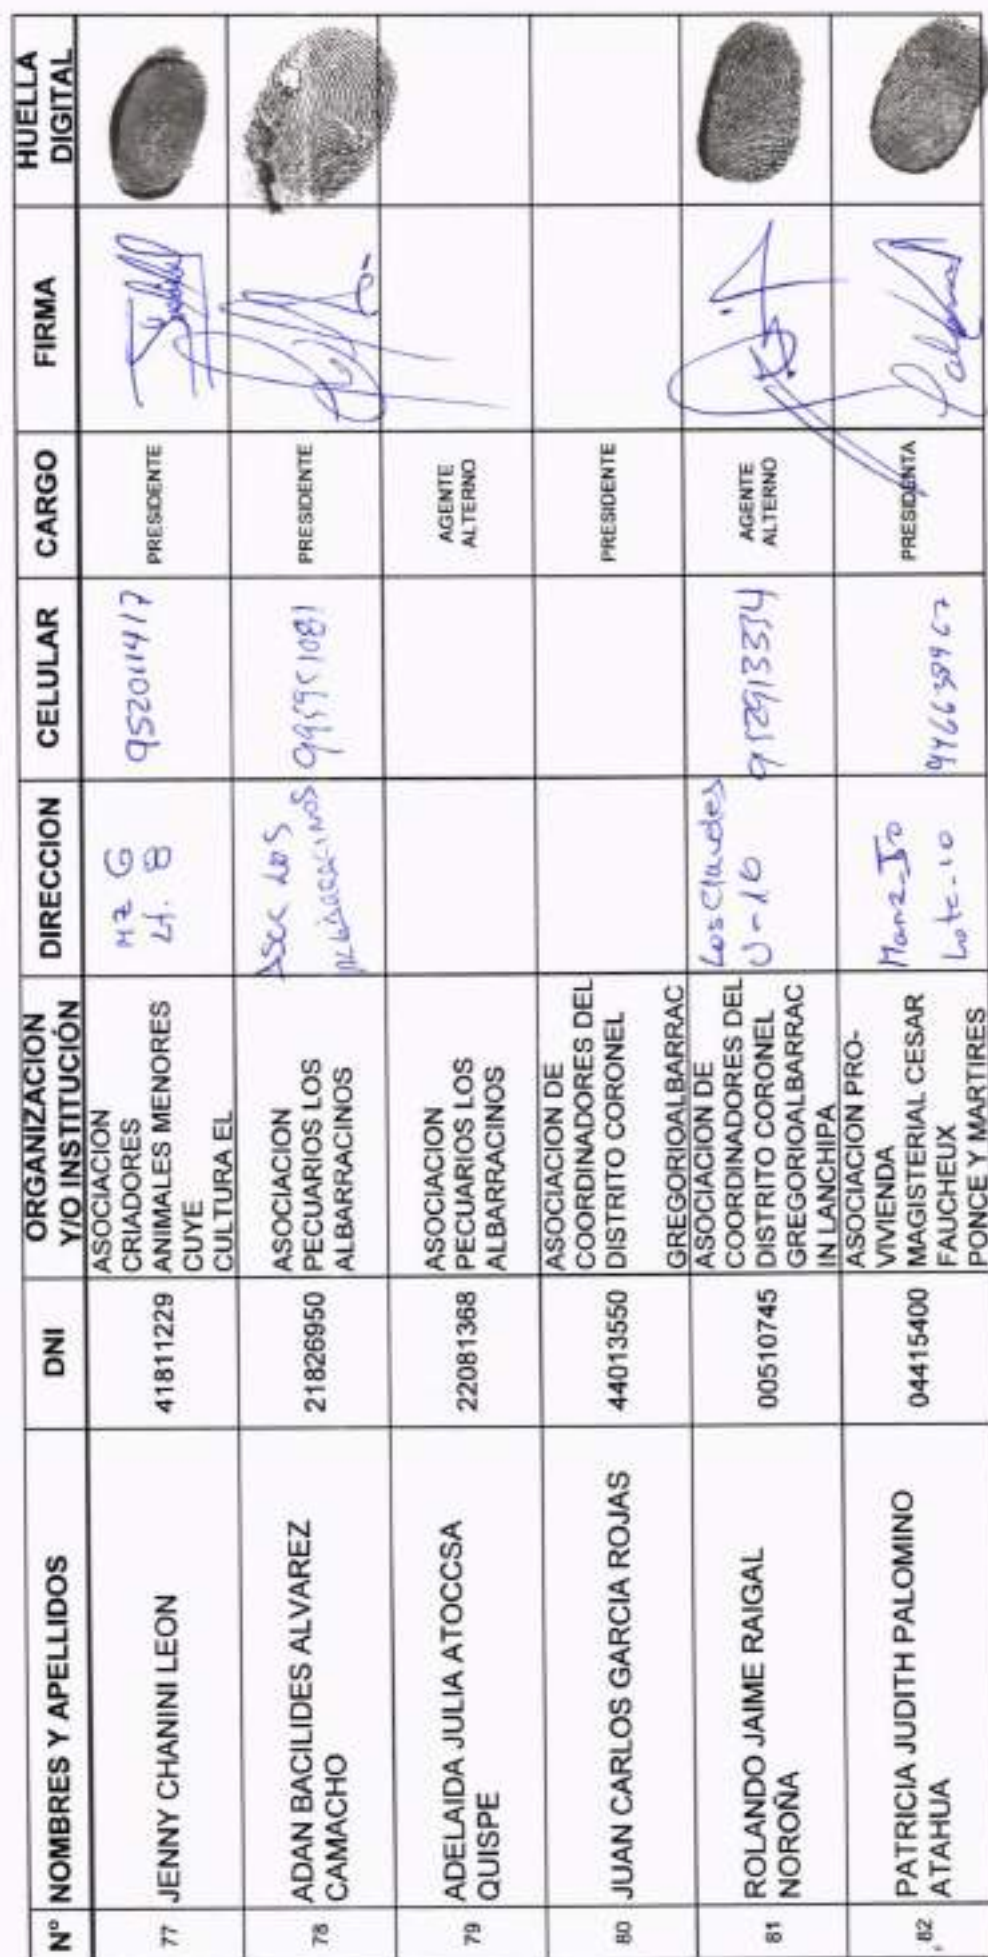 Nº NOMBRES Y APELLIDOS DNI ORGANIZACIÓN Y/O INSTITUCIÓN DIRECCION CELULAR CARGO FIRMA HUELLA DIGITAL
77 JENNY CHANINI LEON 41811229
ASOCIACION
CRIADORES
ANIMALES MENORES
CUYE
CULTURA EL
MZ G
Lt. 8
952011417
PRESIDENTE
78 ADAN BACILIDES ALVAREZ
CAMACHO
21826950
ASOCIACION
PECUARIOS LOS
ALBARRACINOS
Asoc Los
ALBARRACINOS
995951081
PRESIDENTE
79 ADELAIDA JULIA ATOCCSA
QUISPE
22081368
ASOCIACION
PECUARIOS LOS
ALBARRACINOS
AGENTE
ALTERNO
80 JUAN CARLOS GARCIA ROJAS 44013550
ASOCIACION DE
COORDINADORES DEL
DISTRITO CORONEL
GREGORIOALBARRAC
PRESIDENTE
81 ROLANDO JAIME RAIGAL
NOROÑA
00510745
ASOCIACION DE
COORDINADORES DEL
DISTRITO CORONEL
GREGORIOALBARRAC
IN LANCHIPA
Los Claveles
U-16
952913334
AGENTE
ALTERNO
82 PATRICIA JUDITH PALOMINO
ATAHUA
04415400
ASOCIACION PRO-
VIVIENDA
MAGISTERIAL CESAR
FAUCHEUX
PONCE Y MARTIRES
Lote-10
PRESIDENTA